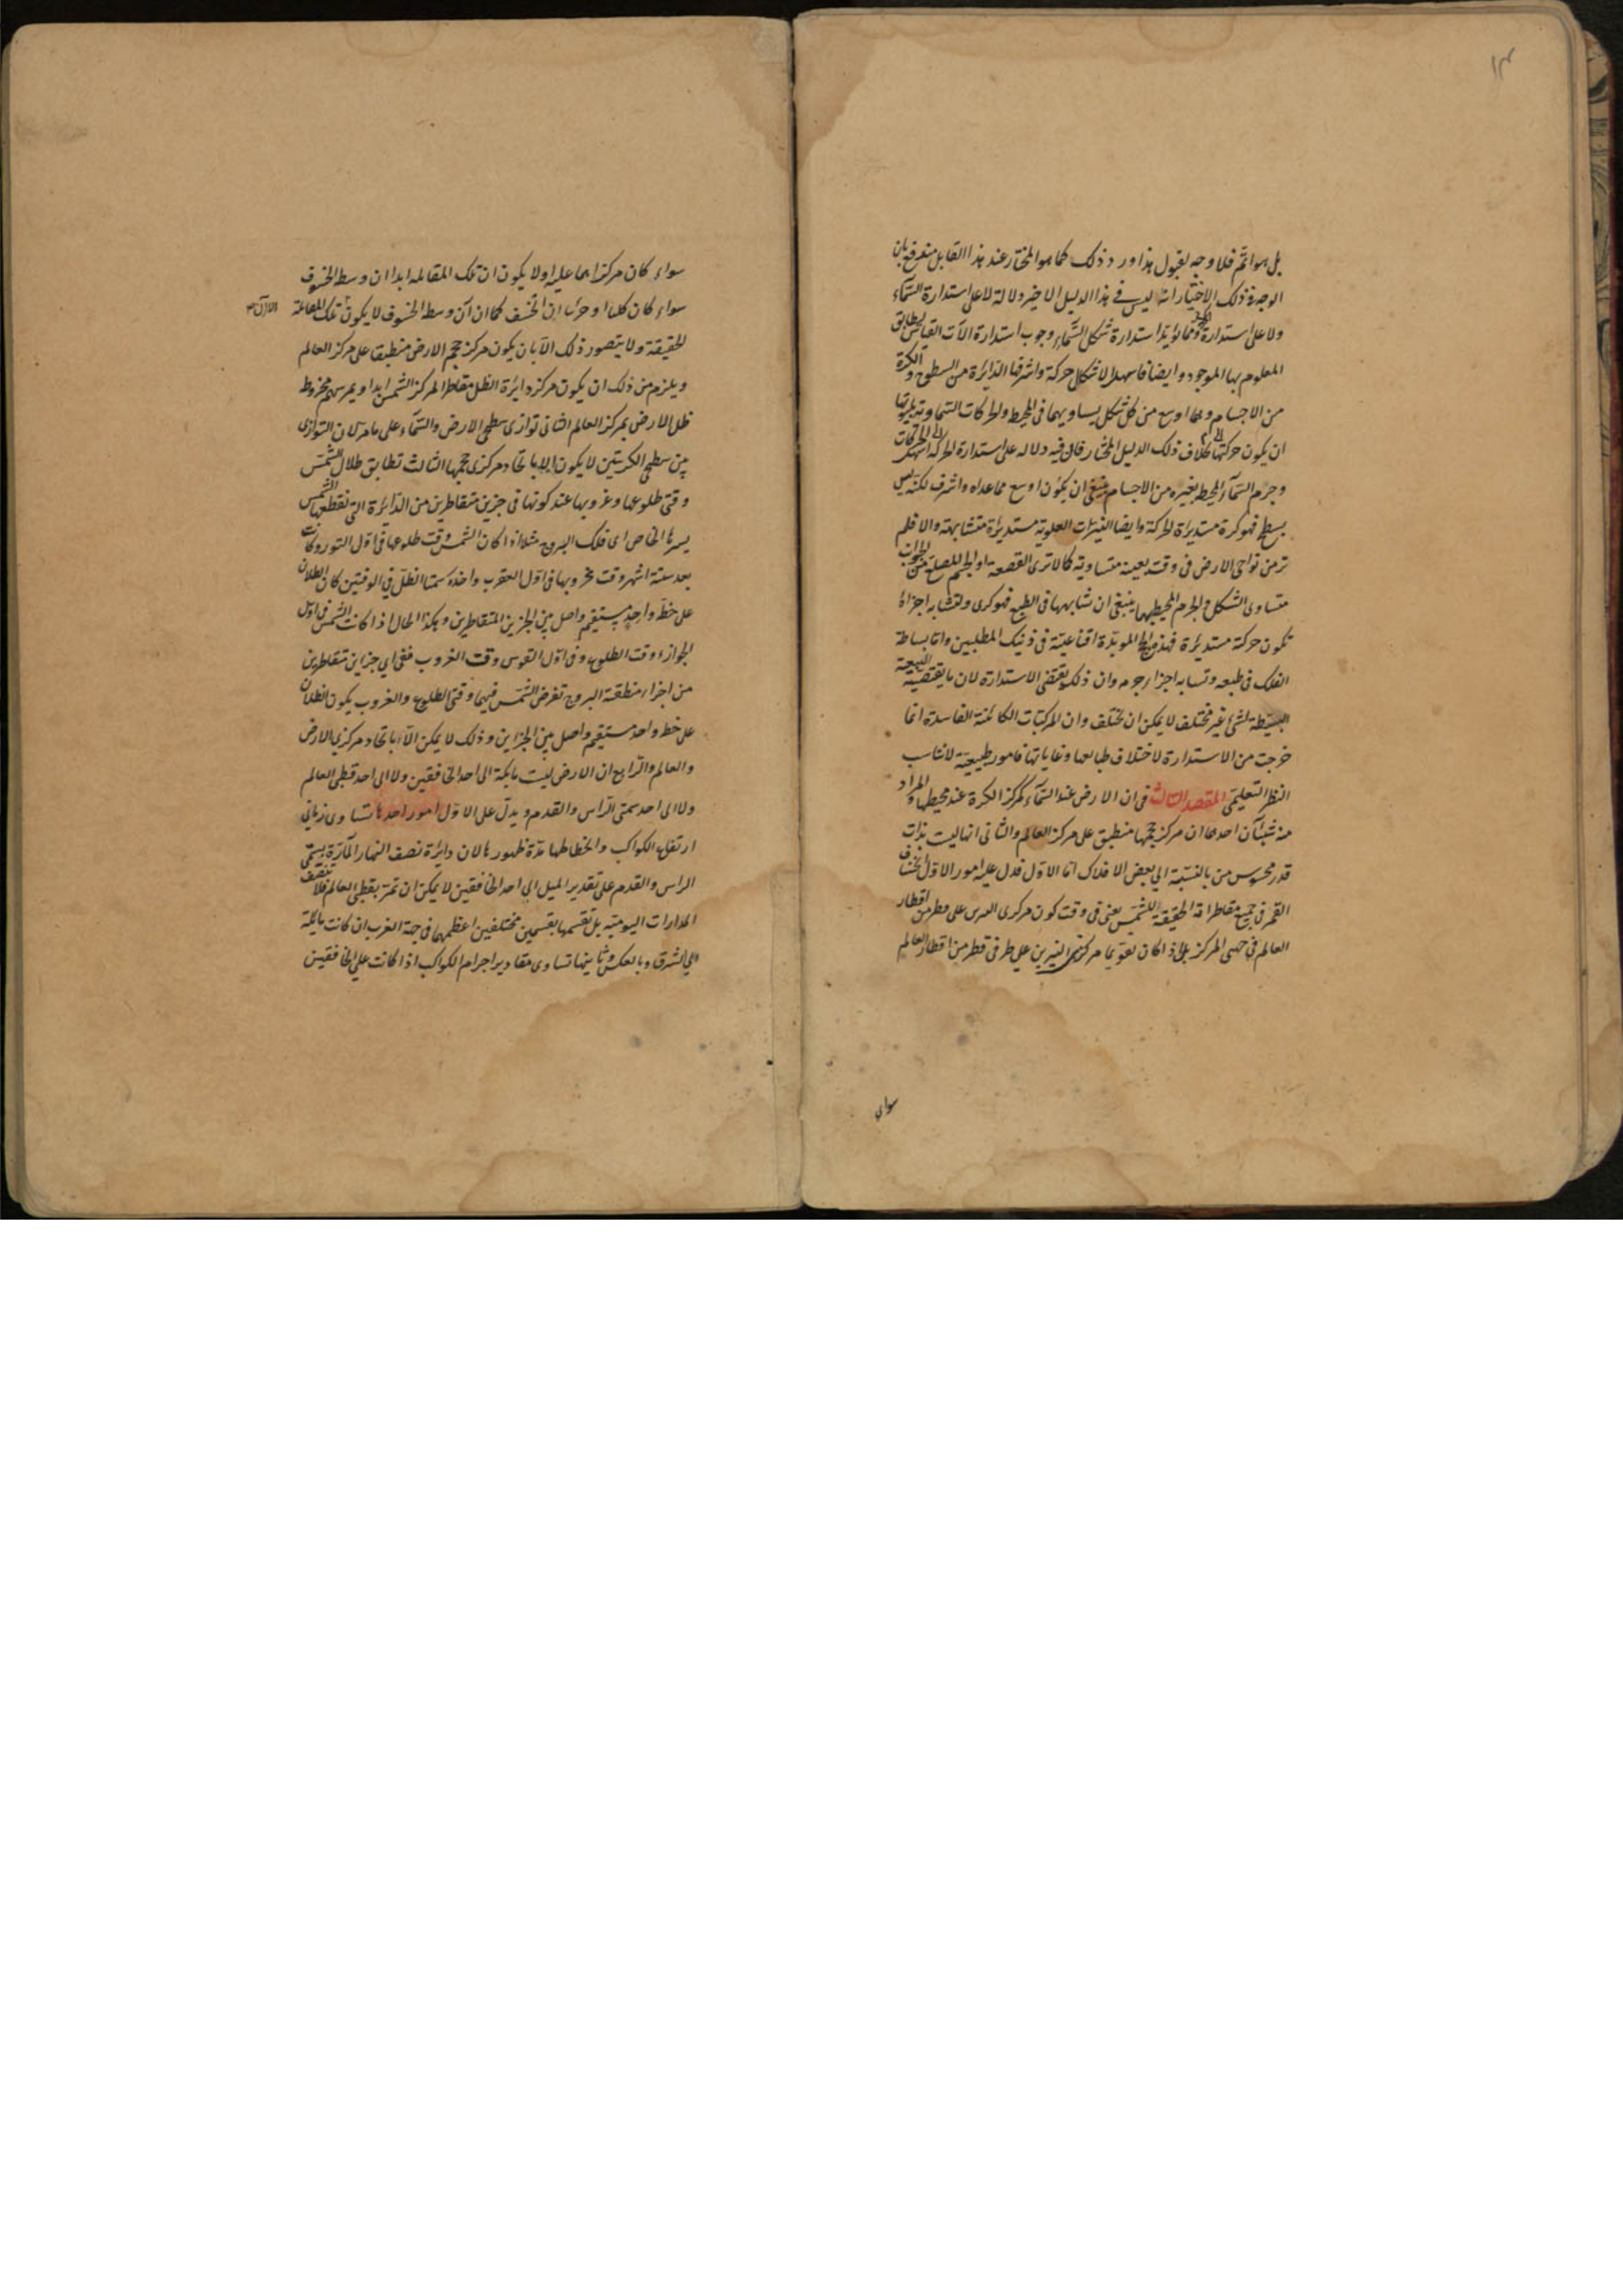 ١٣
بل هو اتم فلا وجه لقبول هذا ورد ذلك كما هو المختار عند هذا القابل منعرفه بان
الوجه في ذلك الاختيار انه ليس في هذا الدليل الاخير دلالة لا على استدارة السماء
ولا على استدارة ومما يؤيد استدارة شكل السماء وجوب استدارة الآت القياس ليطابق
المعلوم بها الموجود وايضا فاسهل الاشكال حركة واشرفها الدائرة من السطوح والكرة
من الاجسام وهما اوسع من كل شكل يساويهما في المحيط والحركات السماوية
ان يكون حركتها بخلاف ذلك الدليل المختار فان فيه دلالة على استدارة الحركة اسهل الحركات
وجرم السماء المحيط بغيره من الاجسام ينبغي ان يكون اوسع مما عداه واشرف لكنه ليس
بسطح فهو كرة مستديرة الحركة وايضا النيرات العلوية مستديرة متشابهة والا فلم
تر من نواحي الارض في وقت بعينه متساوية كما لا ترى القصعة او الجسم المضلع من الجوانب
متساوي الشكل والجرم المحيط بها ينبغي ان شابهها في الطبع فهو كري ولتشابه اجزائه
تكون حركة مستديرة فهذه الحجج المويدة اقناعية في ذينك المطلبين واما بساطة
الفلك في طبعه وتشابه اجزاء جرمه وان ذلك يقتضي الاستدارة لان ما يقتضيه الطبيعة
البسيطة لشئ غير مختلف لا يمكن ان يختلف وان المركبات الكائنة الفاسدة انما
خرجت من الاستدارة لاختلاف طبائعها وغاياتها فامور طبيعية لا تناسب
النظر التعليمي المقصد الثالث في ان الارض عند السماء كمركز الكرة عند محيطها والمراد
منه شيئان احدهما ان مركز حجمها منطبق على مركز العالم والثاني انها ليست بذات
قدر محسوس من بالنسبة الي بعض الافلاك اما الاول فدل عليه امور الاول انخساف
القمر في جميع مقاطراته الحقيقية للشمس يعني في وقت كون مركزي على قطر من اقطار
العالم في جهتي المركز بل اذا كان تقويما مركزي النيرين علي طرفي قطر من اقطار العالم
سواء
سواء كان مركزاهما عليه او لا يكون ان تلك المقابلة ابدا ان وسط الخسوف
سواء كان كليا او جزئيا ان انخسف كما ان آن وسط الخسوف لا يكون تلك المقابلة
الا آن
الحقيقة ولا يتصور ذلك الا بان يكون مركز حجم الارض منطبقا على مركز العالم
ويلزم من ذلك ان يكون مركز دائرة الظل مقاطرا لمركز الشمس ابدا ويمر سهم مخروط
ظل الارض بمركز العالم الثاني توازي سطحي الارض والسماء على ما مر لان التوازي
بين سطحي الكريتين لا يكون الا باتحاد مركزي حجمها الثالث تطابق ظلال الشمس
وقتي طلوعها وغروبها عند كونها في جزئين متقاطرين من الدائرة التي تقطعها الشمس
بسيرها الخاص اي فلك البروج مثلا اذا كان الشمس وقت طلوعها في اول الثور وكانت
بعد ستة اشهر وقت غروبها في اول العقرب واخذه سمتا الظل في الوقتين كان الظلان
على خط واحد مستقيم واصل بين الجزئين المتقاطرين وهكذا الحال اذا كانت الشمس في اول
الجوزاء وقت الطلوع وفي اول القوس وقت الغروب ففي اي جزئين متقاطرين
من اجزاء منطقة البروج تفرض الشمس فيهما وقتي الطلوع والغروب يكون الظلان
على خط واحد مستقيم واصل بين الجزئين وذلك لا يمكن الا باتحاد مركزي الارض
والعالم والرابع ان الارض ليست مايلة الى احد الخافقين ولا الى احد قطبي العالم
ولا الى احد سمتي الراس والقدم ويدل على الاول امور احدها تساوي زماني
ارتفاع الكواكب وانحطاطها مدة ظهورها لان دائرة نصف النهار المارة بسمتي
الراس والقدم على تقدير الميل الي احد الخافقين لا يمكن ان تمر بقطبي العالم فلا تنصف
المدارات اليومية بل تقسمها بقسمين مختلفين اعظمهما في جهة الغرب ان كانت مايلة
الي الشرق وبالعكس وثانيها تساوي مقادير اجرام الكواكب اذا كانت علي الخافقين